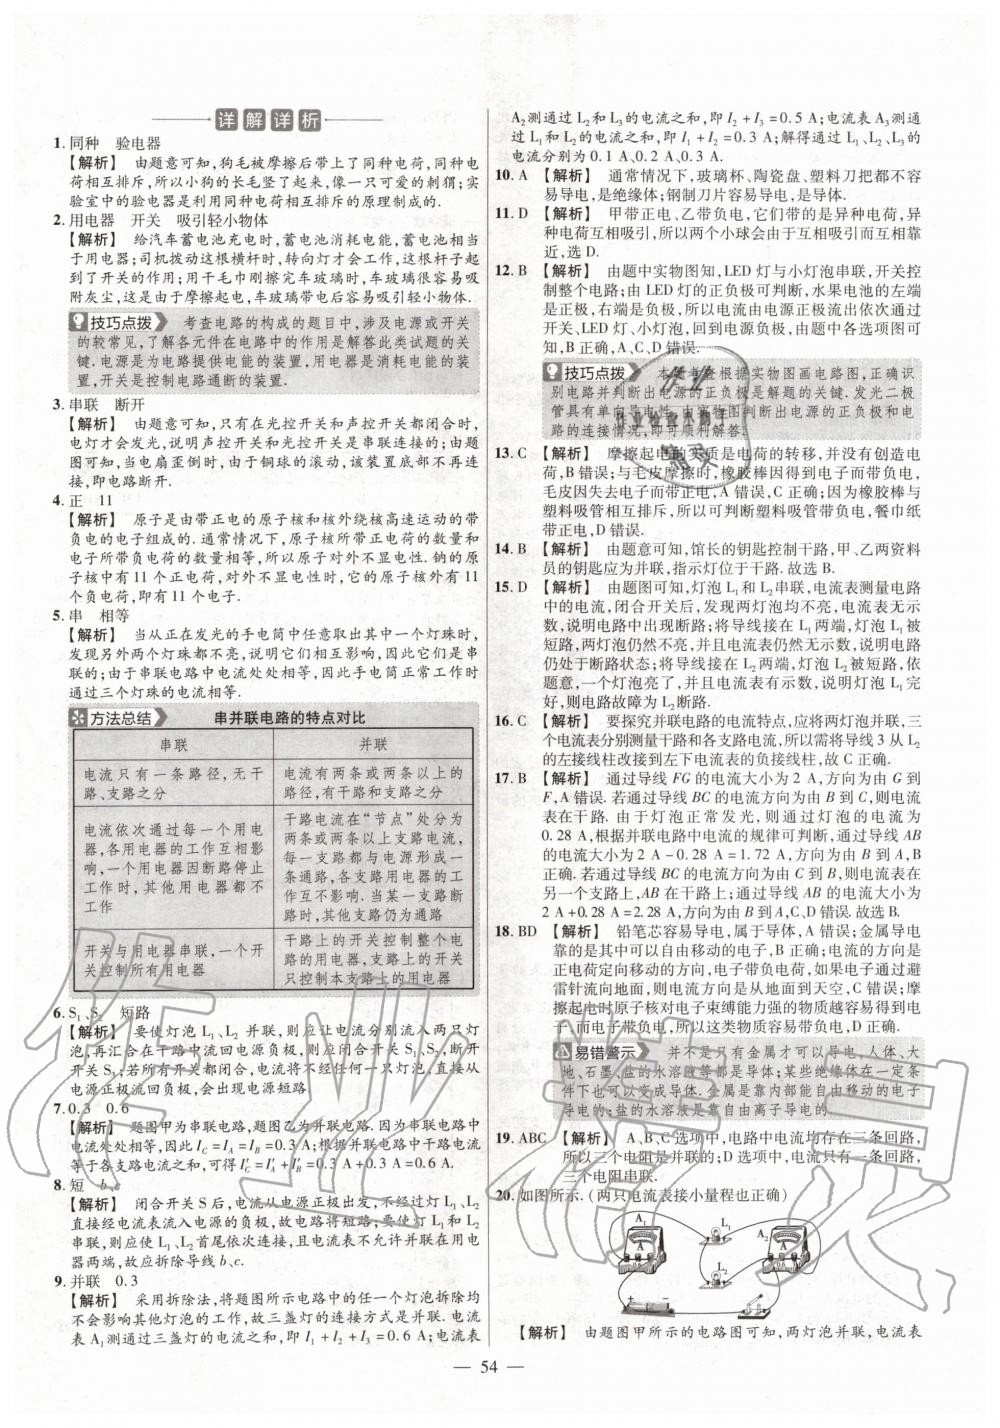 详解详析
1. 同种　验电器
【解析】　由题意可知,狗毛被摩擦后带上了同种电荷,同种电
荷相互排斥,所以小狗的长毛竖了起来,像一只可爱的刺猬;实
验室中的验电器是利用同种电荷相互排斥的原理制成的.
2. 用电器　开关　吸引轻小物体
【解析】　给汽车蓄电池充电时,蓄电池消耗电能,蓄电池相当
于用电器;司机拨动这根横杆时,转向灯才会工作,这根杆子起
到了开关的作用;用干毛巾刚擦完车玻璃时,车玻璃很容易吸
附灰尘,这是由于摩擦起电,车玻璃带电后容易吸引轻小物体.
技巧点拨　考查电路的构成的题目中,涉及电源或开关
的较常见,了解各元件在电路中的作用是解答此类试题的关
键.电源是为电路提供电能的装置,用电器是消耗电能的装
置,开关是控制电路通断的装置.
3. 串联　断开
【解析】　由题意可知,只有在光控开关和声控开关都闭合时,
电灯才会发光,说明声控开关和光控开关是串联连接的;由题
图可知,当电扇歪倒时,由于铜球的滚动,该装置底部不再连
接,即电路断开.
4. 正　11
【解析】　原子是由带正电的原子核和核外绕核高速运动的带
负电的电子组成的.通常情况下,原子核所带正电荷的数量和
电子所带负电荷的数量相等,所以原子对外不显电性.钠的原
子核中有 11 个正电荷,对外不显电性时,它的原子核外有 11
个负电荷,即有 11 个电子.
5. 串　相等
【解析】　当从正在发光的手电筒中任意取出其中一个灯珠时,
发现另外两个灯珠都不亮,说明它们相互影响,因此它们是串
联的;由于串联电路中电流处处相等,因此手电筒正常工作时
通过三个灯珠的电流相等.
方法总结　串并联电路的特点对比
串联　并联
电流只有一条路径,无干路、支路之分　电流有两条或两条以上的路径,有干路和支路之分
电流依次通过每一个用电器,各用电器的工作互相影响,一个用电器因断路停止工作时,其他用电器都不工作　干路电流在“节点”处分为两条或两条以上支路电流,每一支路都与电源形成一条通路,各支路用电器的工作互不影响.当某一支路断路时,其他支路仍为通路
开关与用电器串联,一个开关控制所有用电器　干路上的开关控制整个电路的用电器,支路上的开关只控制本支路上的用电器
6. S₁、S₂　短路
【解析】　要使灯泡 L₁、L₂ 并联,则应让电流分别流入两只灯
泡,再汇合在干路中流回电源负极,故应闭合开关 S₁、S₂,断开
开关 S₃;若所有开关都闭合,则电流将不经任何一只灯泡,直接从
电源正极流回负极,会出现电源短路.
7. 0.3　0.6
【解析】　题图甲为串联电路,题图乙为并联电路.因为串联电路中
电流处处相等,因此 I_C = I_A = I_B = 0.3 A;根据并联电路中干路电流
等于各支路电流之和,可得 I′_C = I′_A + I′_B = 0.3 A + 0.3 A = 0.6 A.
8. 短　b、c
【解析】　闭合开关 S 后,电流从电源正极出发,不经过灯 L₁、L₂
直接经电流表流入电源的负极,故电路将短路;要使灯 L₁ 和 L₂
串联,则灯 L₁、L₂ 首尾依次连接,且电流表不允许并联在用电
器两端,故应拆除导线 b、c.
9. 并联　0.3
【解析】　采用拆除法,将题图所示电路中的任一个灯泡拆除均
不会影响其他灯泡的工作,故三盏灯的连接方式是并联.电流
表 A₁ 测通过三盏灯的电流之和,即 I₁ + I₂ + I₃ = 0.6 A;电流表
A₂ 测通过 L₂ 和 L₃ 的电流之和,即 I₂ + I₃ = 0.5 A;电流表 A₃ 测
通过 L₁ 和 L₃ 的电流之和,即 I₁ + I₃ = 0.3 A;解得通过 L₁、L₂、L₃ 的
电流分别为 0.1 A、0.3 A、0.2 A.
10. A　【解析】　通常情况下,玻璃杯、陶瓷盘、塑料刀把都不
容易导电,是绝缘体;钢制刀片容易导电,是导体.
11. D　【解析】　甲带正电、乙带负电,它们带的是异种电荷,异
种电荷互相吸引,所以两个小球会由于互相吸引而靠
近,选 D.
12. B　【解析】　由题中实物图知,LED 灯与小灯泡串联,开关控
制整个电路;由 LED 灯的正负极可判断,水果电池的左端
是正极,右端是负极,所以电流由电源正极流出依次通过
开关、LED 灯、小灯泡,回到电源负极,由题中各选项图可
知,B 正确,A、C、D 错误.
技巧点拨　本题考查根据实物图画电路图,正确识
别电路并判断出电源的正负极是解题的关键.发光二极
管具有单向导电性,由实物图判断出电源的正负极和电
路的连接情况,即可顺利解答.
13. C　【解析】　摩擦起电的实质是电荷的转移,并没有创造电
荷,B 错误;与毛皮摩擦时,橡胶棒因得到电子而带负电,
毛皮因失去电子而带正电,A 错误,C 正确;因为橡胶棒与
塑料吸管相互排斥,所以可判断塑料吸管带负电,餐巾纸
带正电,D 错误.
14. B　【解析】　由题意可知,馆长的钥匙控制干路,甲、乙两资料
员的钥匙应为并联,指示灯位于干路.故选 B.
15. D　【解析】　由题图可知,灯泡 L₁ 和 L₂ 串联,电流表测量电路
中的电流,闭合开关后,发现两灯泡均不亮,电流表无示
数,说明电路中出现断路;将导线接在 L₁ 两端,灯泡 L₁ 被
短路,两灯泡仍然不亮,并且电流表仍然无示数,说明电路
仍处于断路状态;将导线接在 L₂ 两端,灯泡 L₂ 被短路,依
然一个灯泡亮了,并且电流表有示数,说明灯泡 L₁ 完
好,则电路故障为 L₂ 断路.
16. C　【解析】　要探究并联电路的电流特点,应将两灯泡并联,三
个电流表分别测量干路和各支路电流,所以需将导线 3 从 L₂
的左接线柱改接到左下电流表的负接线柱,故 C 正确.
17. B　【解析】　通过导线 FG 的电流大小为 2 A,方向为由 G 到
F,A 错误.若通过导线 BC 的电流方向为由 B 到 C,则电流
表在干路.由于灯泡正常发光,则通过灯泡的电流为
0.28 A,根据并联电路中电流的规律可判断,通过导线 AB
的电流大小为 2 A - 0.28 A = 1.72 A,方向为由 A 到 B,B
正确.若通过导线 BC 的电流方向为由 C 到 B,则电流表在
另一个支路上,AB 在干路上;通过导线 AB 的电流大小为
2 A + 0.28 A = 2.28 A,方向为由 B 到 A,C、D 错误.故选 B.
18. BD　【解析】　铅笔芯容易导电,属于导体,A 错误;金属导电
靠的是其中可以自由移动的电子,B 正确;电流的方向是
正电荷定向移动的方向,电子带负电荷,如果电子通过避
雷针流向地面,则电流方向是从地面到天空,C 错误;摩
擦起电时原子核对电子束缚能力强的物质越容易得到电
子,而电子带负电,所以这类物质容易带负电,D 正确.
易错警示　并不是只有金属才可以导电,人体、大
地、石墨、盐的水溶液等都是导体;某些绝缘体在一定条件
下也可以变成导体.金属是靠内部能自由移动的电子
导电的;盐的水溶液是靠自由离子导电的.
19. ABC　【解析】　A、B、C 选项中,电路中电流均存在三条回路,
所以三个电阻是并联的;D 选项中,电流只有一条回路,
三个电阻串联.
20. 如图所示.(两只电流表接小量程也正确)
A₁　L₁　A₂
A　L₂　A
【解析】　由题图甲所示的电路图可知,两灯泡并联,电流表
— 54 —
作业精灵